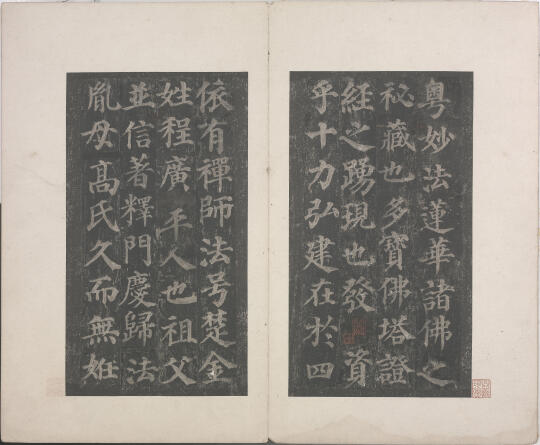 粤妙法蓮華諸佛之
祕藏也多寶佛塔證
經之踴現也發 資
乎十力弘建在於四
依有禪師法号楚金
姓程廣平人也祖父
並信著釋門慶歸法
胤母髙氏久而無姙